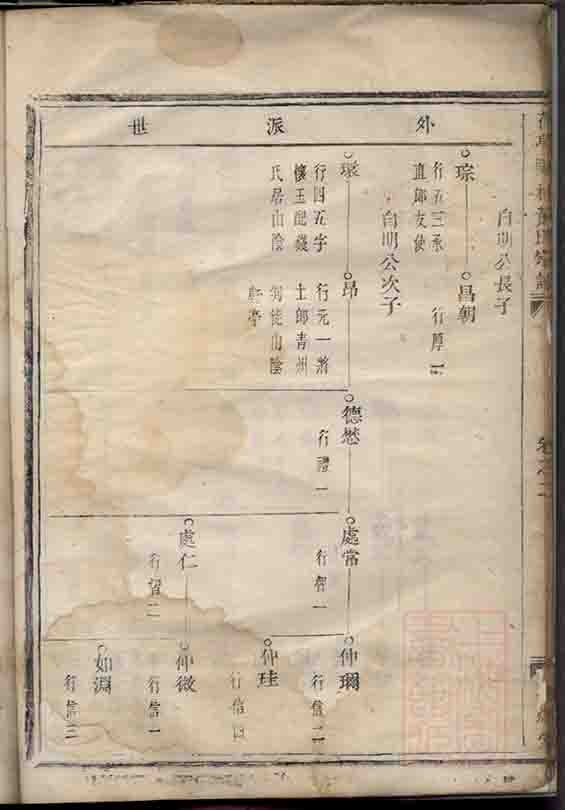 外派世
自明公長子
琮
行五三承
直郎友使
昌朝
行厚四
自明公次子
行四五字
懷玉配錢
氏居山陰
昂
行元一將
士郎青州
判徙山陰
德懋
行禮一
處常
行智一
處仁
行智二
仲珪
行信四
仲微
行信一
如淵
行信三
卷之二